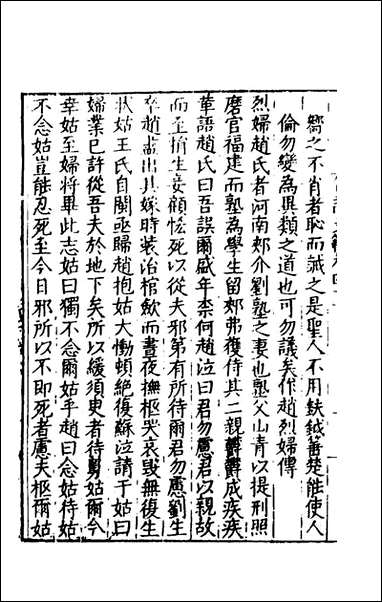 鄒之不肖者恥而誡之是聖人不用鈇鉞箠楚能使人
倫勿變為異類之道也可勿議矣作趙烈婦傳
烈婦趙氏者河南郟介劉塾之妻也塾父山青以提刑照
磨官福建而塾為學生留郟弗獲侍其二親鬱鬱成疾疾
革語趙氏曰吾誤爾盛年柰何趙泣曰君勿慮君以親故
而至捐生妾顧恡死以從夫邪第有所待爾君勿慮劉生
卒趙盡出其嫁時装治棺歛而晝夜撫柩哭哀毀無復生
狀姑王氏自閩亟歸趙抱姑大慟頓絶復蘇泣請于姑曰
婦業已許從吾夫於地下矣所以緩須臾者待舅姑爾今
幸姑至婦將畢此志姑曰獨不念爾姑乎趙曰念姑待姑
不念姑豈能忍死至今日邪所以不即死者慮夫柩爾姑